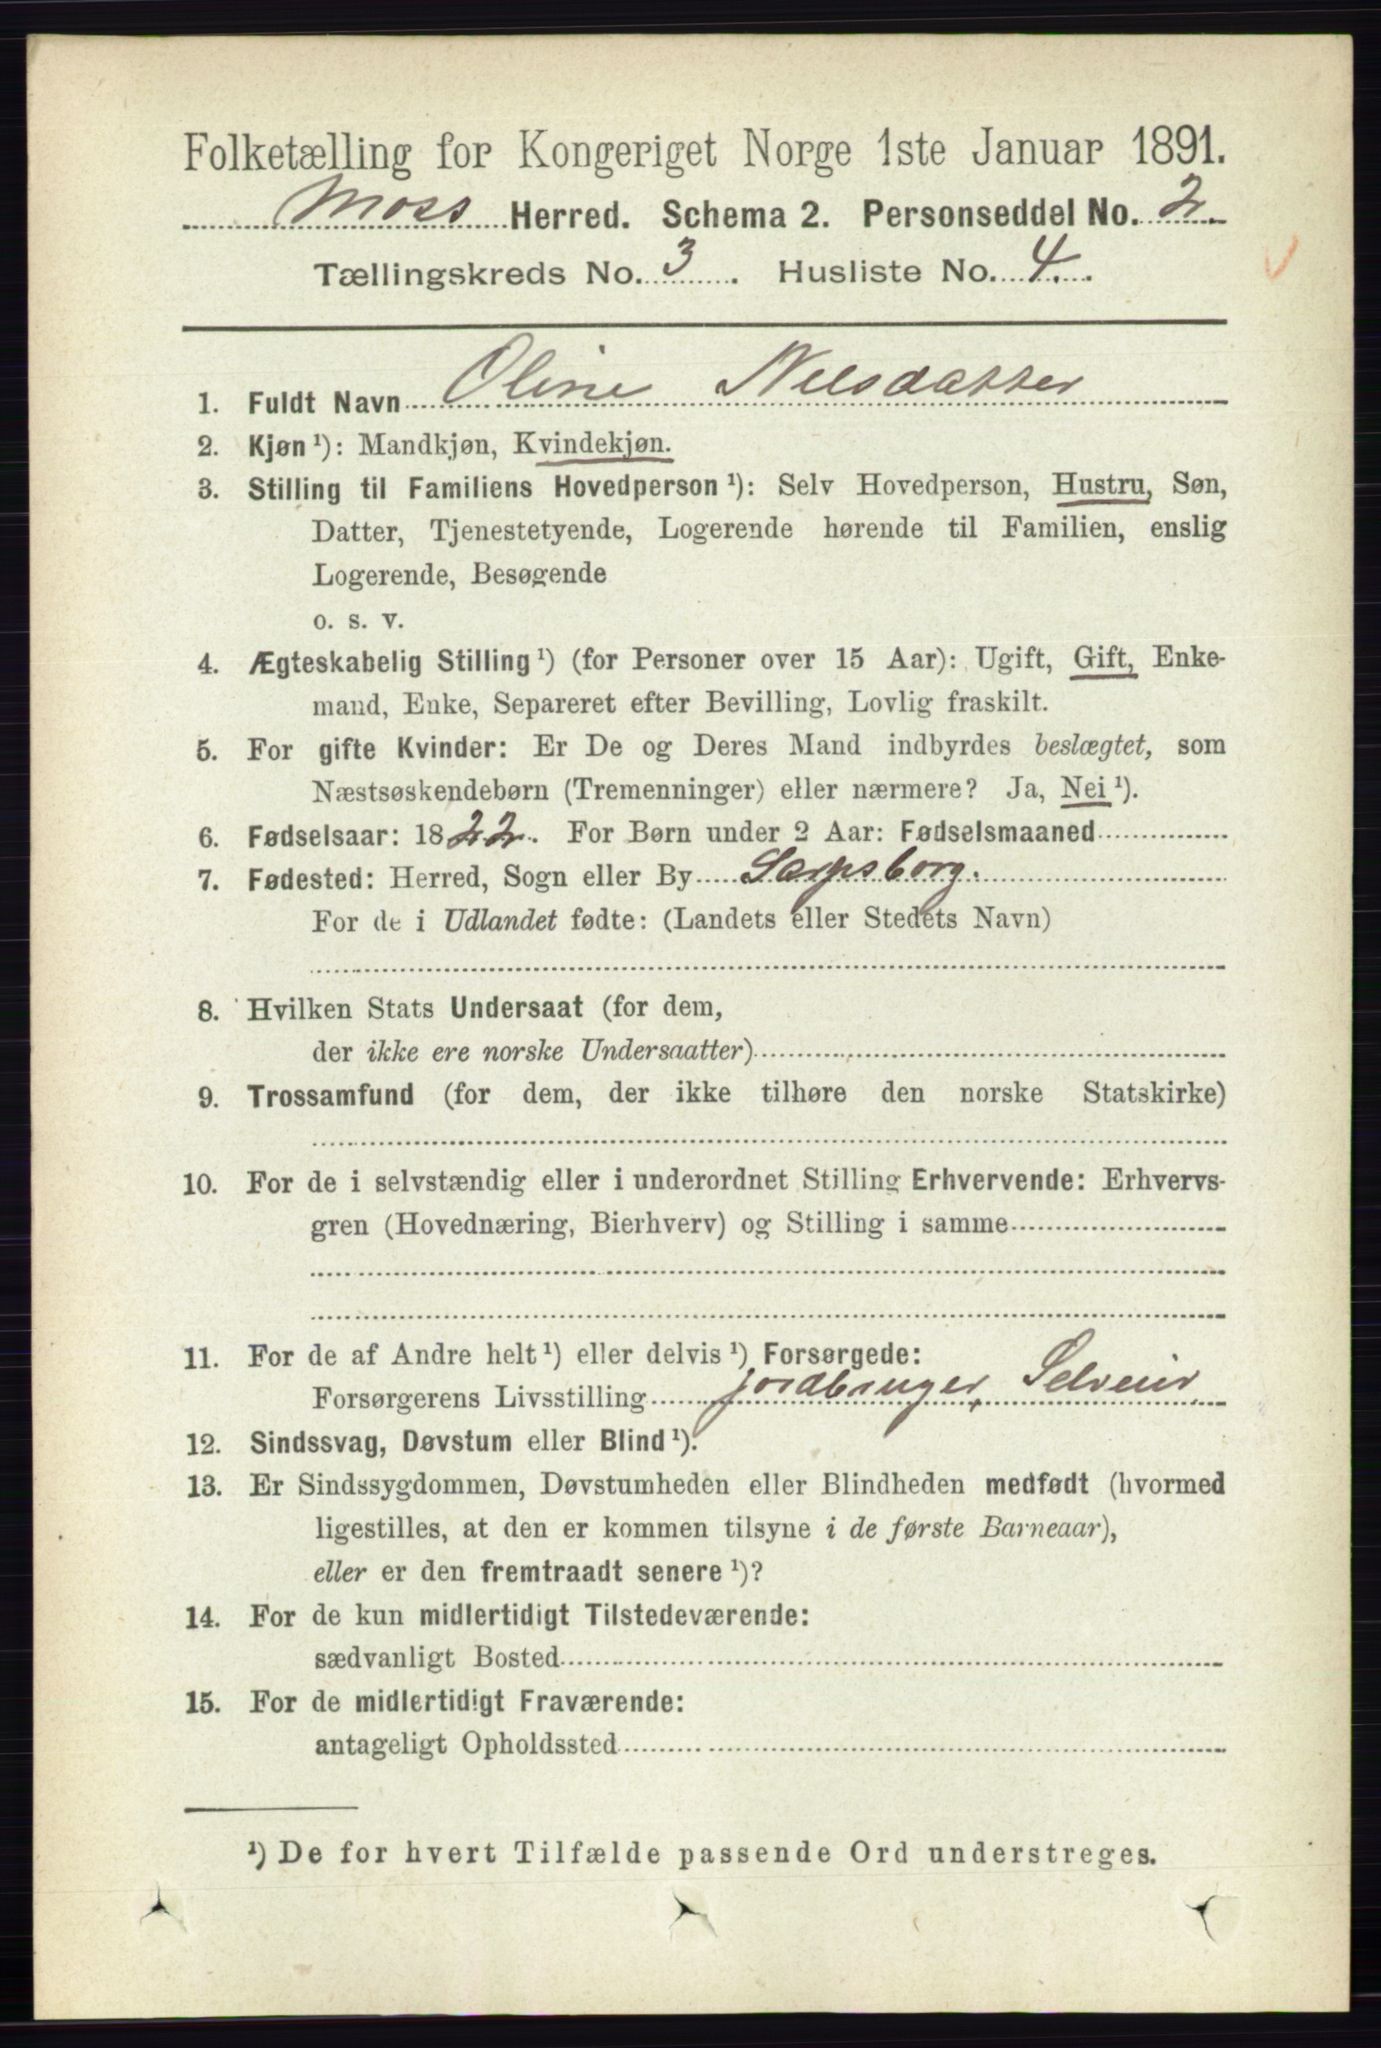 Folketælling for Kongeriget Norge 1ste Januar 1891.
Moss Herred. Schema 2. Personseddel No. 2.
Tællingskreds No. 3. Husliste No. 4.
1. Fuldt Navn Oline Nilsdatter
2. Kjøn ¹): Mandkjøn, Kvindekjøn.
3. Stilling til Familiens Hovedperson ¹): Selv Hovedperson, Hustru, Søn,
Datter, Tjenestetyende, Logerende hørende til Familien, enslig
Logerende, Besøgende
o. s. v.
4. Ægteskabelig Stilling ¹) (for Personer over 15 Aar): Ugift, Gift, Enke-
mand, Enke, Separeret efter Bevilling, Lovlig fraskilt.
5. For gifte Kvinder: Er De og Deres Mand indbyrdes beslægtet, som
Næstsøskendebørn (Tremenninger) eller nærmere? Ja, Nei ¹).
6. Fødselsaar: 1822. For Børn under 2 Aar: Fødselsmaaned
7. Fødested: Herred, Sogn eller By Sarpsborg.
For de i Udlandet fødte: (Landets eller Stedets Navn)
8. Hvilken Stats Undersaat (for dem,
der ikke ere norske Undersaatter)
9. Trossamfund (for dem, der ikke tilhøre den norske Statskirke)
10. For de i selvstændig eller i underordnet Stilling Erhvervende: Erhvervs-
gren (Hovednæring, Bierhverv) og Stilling i samme
11. For de af Andre helt ¹) eller delvis ¹) Forsørgede:
Forsørgerens Livsstilling Jordbruger, Selveier
12. Sindssvag, Døvstum eller Blind ¹).
13. Er Sindssygdommen, Døvstumheden eller Blindheden medfødt (hvormed
ligestilles, at den er kommen tilsyne i de første Barneaar),
eller er den fremtraadt senere ¹)?
14. For de kun midlertidigt Tilstedeværende:
sædvanligt Bosted
15. For de midlertidigt Fraværende:
antageligt Opholdssted
¹) De for hvert Tilfælde passende Ord understreges.